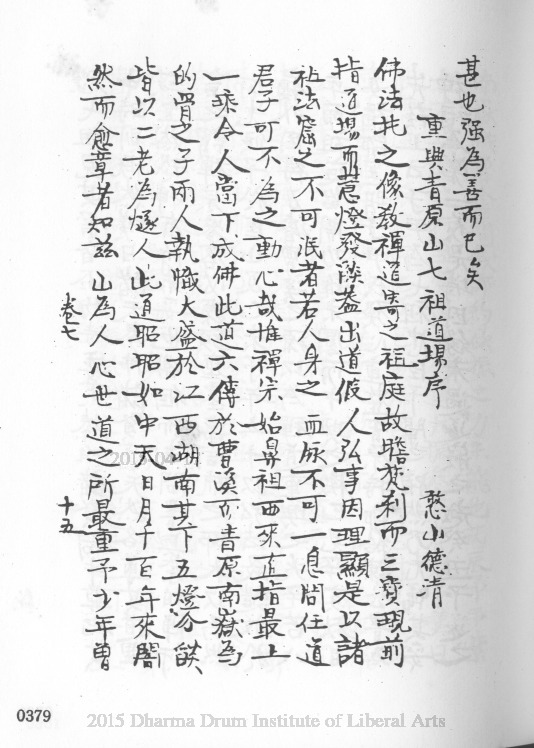 甚也强為善而已矣
重興青原山七祖道場序 憨山德清
佛法扗之像教禪道寄之祖庭故瞻梵刹而三寶現前
指道場而慧燈發談葢出道假人弘事因理顯是以諸
祖法窟之不可泯者若人身之血脉不可一息間任道
君子可不為之動心哉惟禪宗始鼻祖西來直指最上
一乘令人當下成佛此道六傳於曹溪而青原南嶽為
的骨之子兩人執幟大盛於江西湖南其下五燈分燄
皆以二老為燧人此道昭昭如中天日月千百年來闇
然而愈章者知兹山為人心世道之所最重予少年曽
卷七 十五
0379 2015 Dharma Drum Institute of Liberal Arts